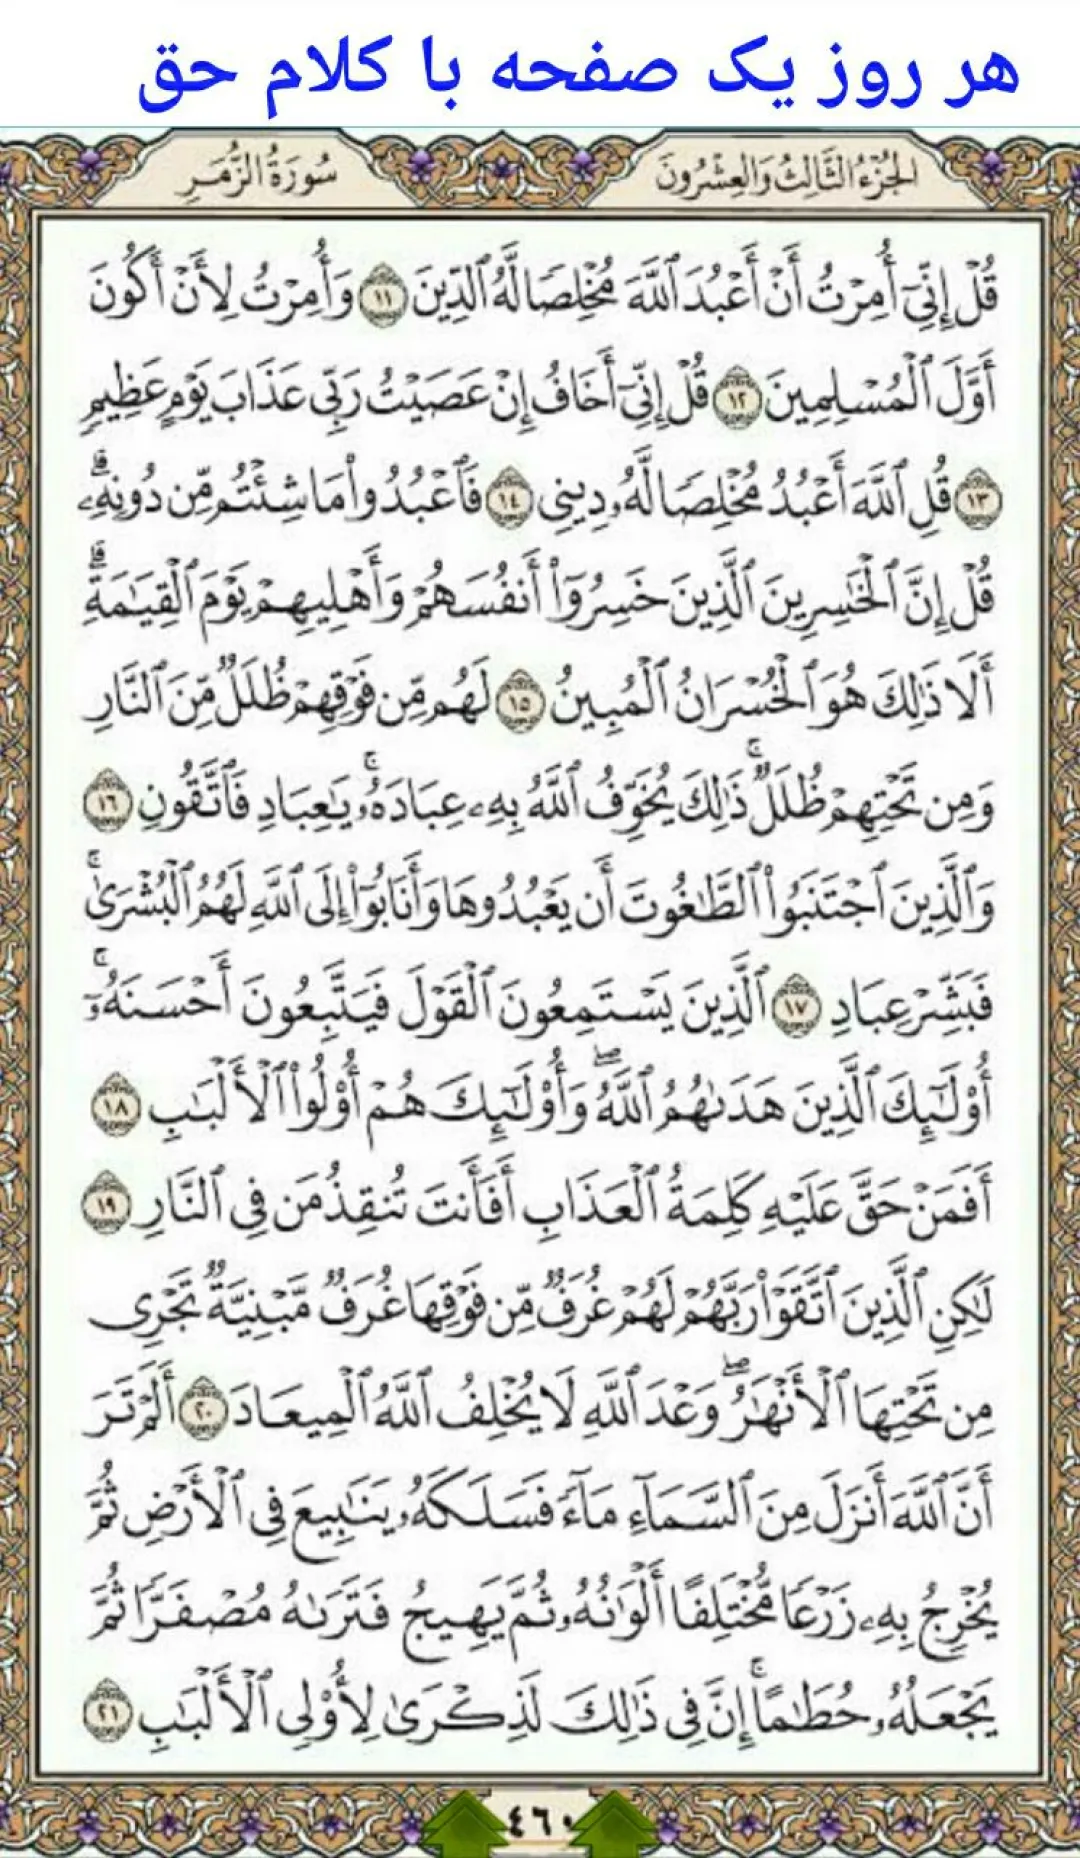 هر روز یک صفحه با کلام حق
الجُزْءُ الثَّالِثُ وَالعِشْرُونَ
سُورَةُ الزُّمَرِ
قُلْ إِنِّىٓ أُمِرْتُ أَنْ أَعْبُدَ ٱللَّهَ مُخْلِصًا لَّهُ ٱلدِّينَ ١١ وَأُمِرْتُ لِأَنْ أَكُونَ
أَوَّلَ ٱلْمُسْلِمِينَ ١٢ قُلْ إِنِّىٓ أَخَافُ إِنْ عَصَيْتُ رَبِّى عَذَابَ يَوْمٍ عَظِيمٍ
١٣ قُلِ ٱللَّهَ أَعْبُدُ مُخْلِصًا لَّهُۥ دِينِى ١٤ فَٱعْبُدُوا۟ مَا شِئْتُم مِّن دُونِهِۦ ۗ
قُلْ إِنَّ ٱلْخَـٰسِرِينَ ٱلَّذِينَ خَسِرُوٓا۟ أَنفُسَهُمْ وَأَهْلِيهِمْ يَوْمَ ٱلْقِيَـٰمَةِ ۗ
أَلَا ذَٰلِكَ هُوَ ٱلْخُسْرَانُ ٱلْمُبِينُ ١٥ لَهُم مِّن فَوْقِهِمْ ظُلَلٌ مِّنَ ٱلنَّارِ
وَمِن تَحْتِهِمْ ظُلَلٌ ۚ ذَٰلِكَ يُخَوِّفُ ٱللَّهُ بِهِۦ عِبَادَهُۥ ۚ يَـٰعِبَادِ فَٱتَّقُونِ ١٦
وَٱلَّذِينَ ٱجْتَنَبُوا۟ ٱلطَّـٰغُوتَ أَن يَعْبُدُوهَا وَأَنَابُوٓا۟ إِلَى ٱللَّهِ لَهُمُ ٱلْبُشْرَىٰ ۚ
فَبَشِّرْ عِبَادِ ١٧ ٱلَّذِينَ يَسْتَمِعُونَ ٱلْقَوْلَ فَيَتَّبِعُونَ أَحْسَنَهُۥٓ ۚ
أُو۟لَـٰٓئِكَ ٱلَّذِينَ هَدَىٰهُمُ ٱللَّهُ ۖ وَأُو۟لَـٰٓئِكَ هُمْ أُو۟لُوا۟ ٱلْأَلْبَـٰبِ ١٨
أَفَمَنْ حَقَّ عَلَيْهِ كَلِمَةُ ٱلْعَذَابِ أَفَأَنتَ تُنقِذُ مَن فِى ٱلنَّارِ ١٩
لَـٰكِنِ ٱلَّذِينَ ٱتَّقَوْا۟ رَبَّهُمْ لَهُمْ غُرَفٌ مِّن فَوْقِهَا غُرَفٌ مَّبْنِيَّةٌ تَجْرِى
مِن تَحْتِهَا ٱلْأَنْهَـٰرُ ۖ وَعْدَ ٱللَّهِ لَا يُخْلِفُ ٱللَّهُ ٱلْمِيعَادَ ٢٠ أَلَمْ تَرَ
أَنَّ ٱللَّهَ أَنزَلَ مِنَ ٱلسَّمَآءِ مَآءً فَسَلَكَهُۥ يَنَـٰبِيعَ فِى ٱلْأَرْضِ ثُمَّ
يُخْرِجُ بِهِۦ زَرْعًا مُّخْتَلِفًا أَلْوَٰنُهُۥ ثُمَّ يَهِيجُ فَتَرَىٰهُ مُصْفَرًّا ثُمَّ
يَجْعَلُهُۥ حُطَـٰمًا ۚ إِنَّ فِى ذَٰلِكَ لَذِكْرَىٰ لِأُو۟لِى ٱلْأَلْبَـٰبِ ٢١
٤٦٠